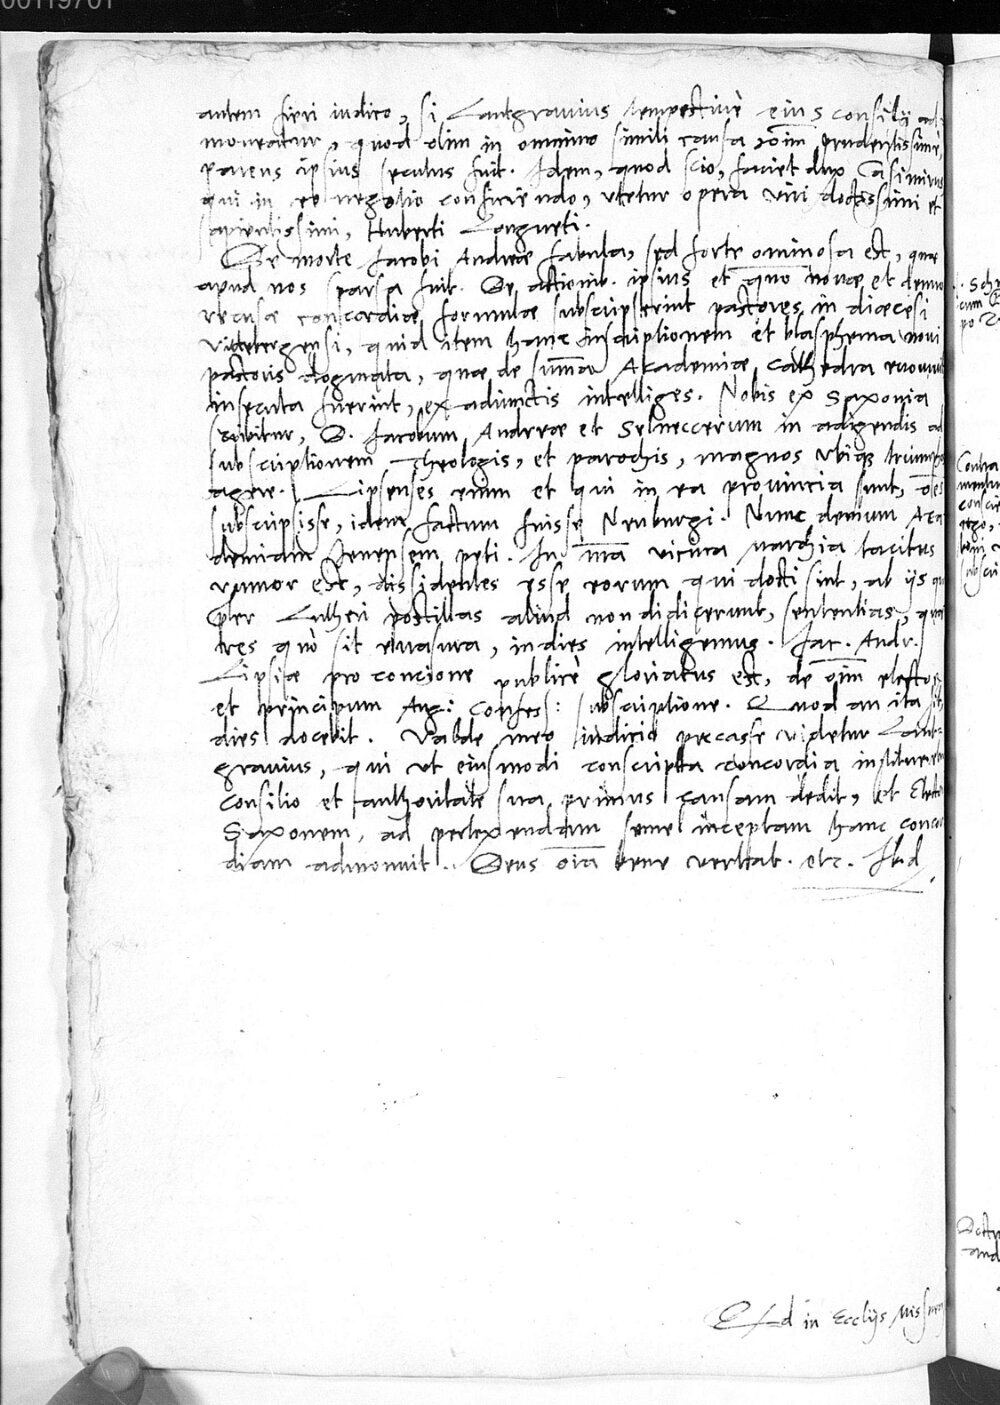 00119701
autem fieri iudico, si Lantgravius tempestivè eius consilii ad-
moneatur, quod olim in omnino simili causa, prudentissimè,
parens ipsius secutus fuit. Idem, quod scio, faciet dux Casimirus
qui in eo negotio conficiendo, utetur opera viri doctissimi et
sapientissimi, Huberti Langueti.
De morte Jacobi Andreæ fabula, sed forte ominosa est, quæ
apud nos sparsa fuit. De actionib. ipsius et quo novæ et denuo
recusæ concordiæ formulæ subscripserint pastores in diœcesi
Vitebergensi, quid item hanc inscriptionem et blasphema novi
pastoris dogmata, quæ de summa Akademiæ cathedra evomuit
insecuta fuerint, ex adiunctis intelliges. Nobis ex Saxonia
scribitur, D. Jacobum Andreæ et Selneccerum in adigendis ad
subscriptionem Theologis, et parochis, magnos ubiq; triumphos
agere. Lipsenses enim et qui in ea provincia sunt, oēs
subscripsisse, idem factum fuisse Neuburgi. Nunc demum Aca
demiam Jenensem peti. In vicina marchia tacitus
rumor est, dissidentes esse eorum qui docti sint, ab iis qui
per Lutheri postillas aliud non didicerunt, sententias, quæ
res quò sit evasura, indies intelligemus. Jac. Andr.
Lipsiæ pro concione publicè gloriatus est, de oīm elector.
et principum Aug: Confess: subscriptione. Quod an ita sit,
dies docebit. Valde meo iudicio peccasse videtur Lant-
gravius, qui ut eiusmodi conscripta concordia institueretur
consilio et authoritate sua primus causam dedit, et Elect.
Saxonem, ad pertexendum semel inceptam hanc concor
diam admonuit. Deus oīa bene vertat. etc.
in Eccliis Misnen